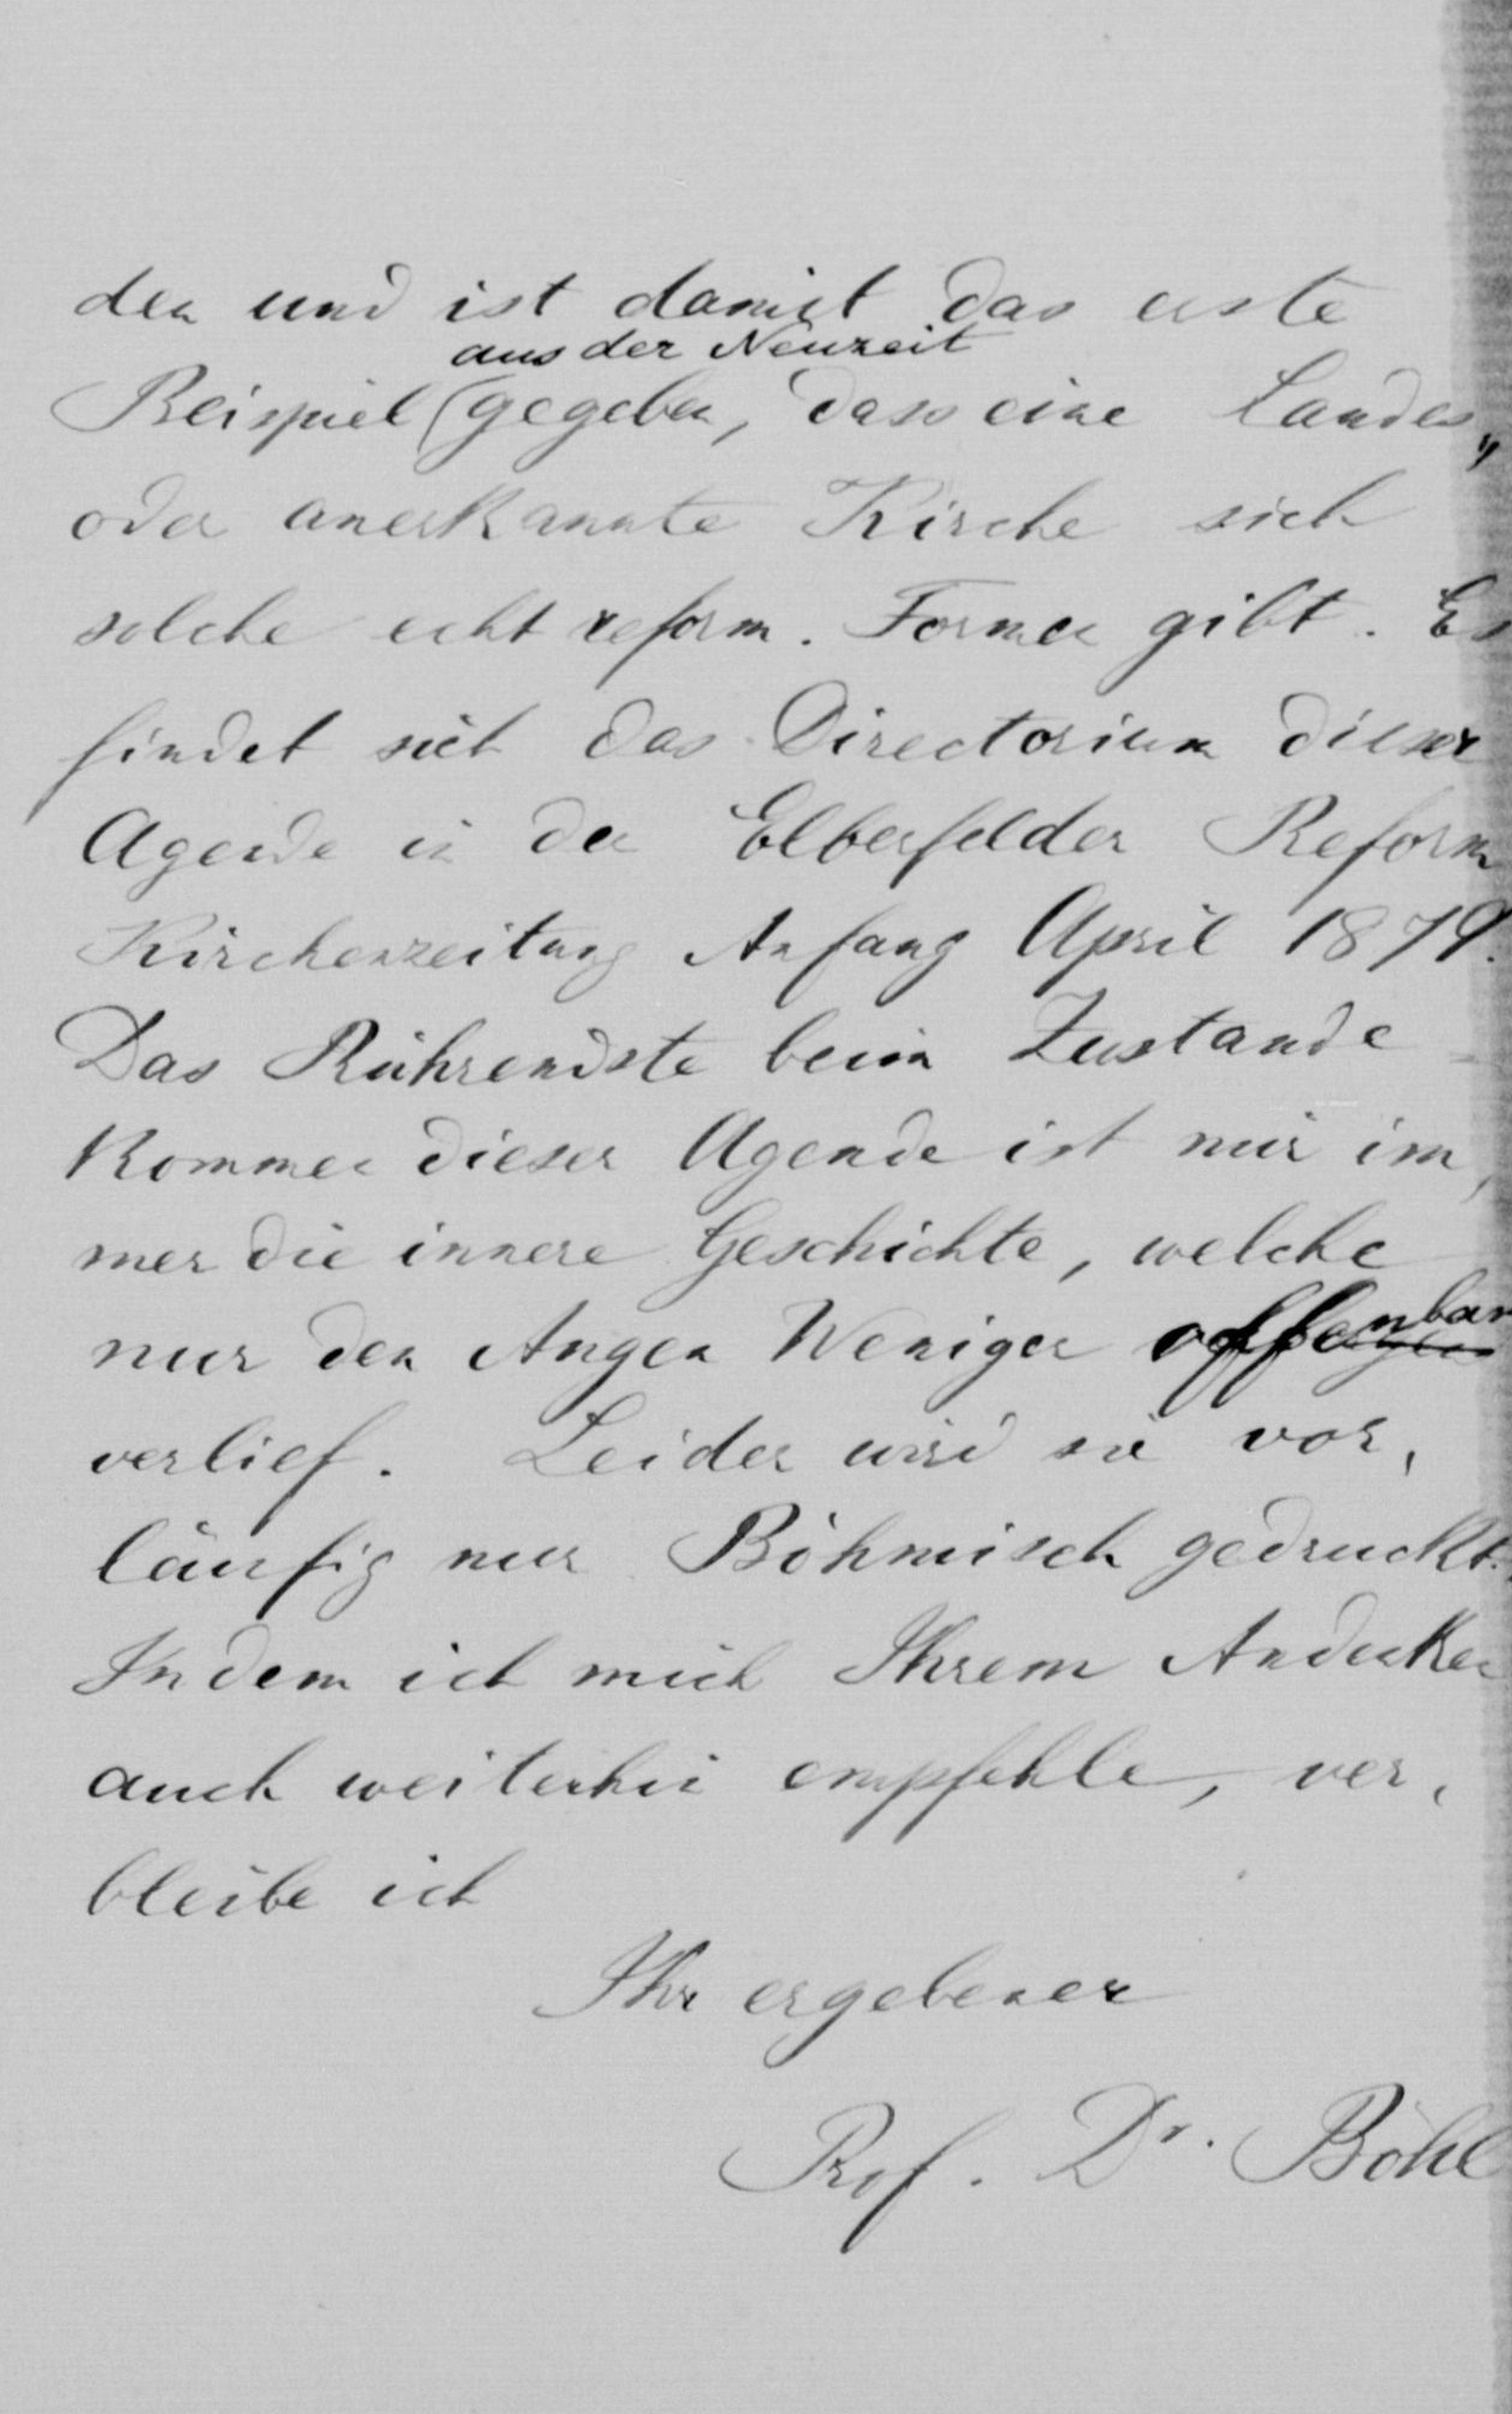 den und ist damit das erste
aus der Neuzeit
Beispiel (gegeben, dass eine Landes„
oder anerkannte Kirche sich
solche echt reform. Formen gibt. Es
findet sich das Directorium dieser
Agende in der Elberfelder Reform
Kirchenzeitung Anfang April 1879.
Das Rührendste beim Zustande
kommen dieser Agende ist mir im,
mer die innere Geschichte, welche
nur den Augen Weniger offenbar
verlief. Leider wird sie vor,
läufig nur Böhmisch gedruckt.
Indem ich mich Ihrem Andenken
auch weiterhin empfehle, ver,
bleibe ich
Ihr ergebener
Prof. Dr. Böhl